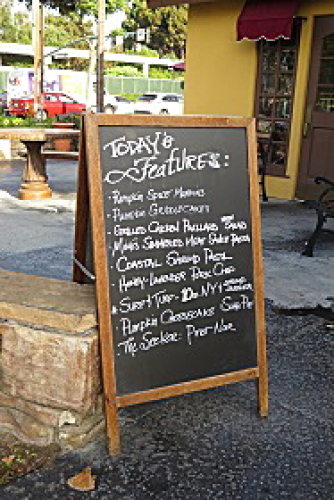 TODAY'S
Features:
· Pumpkin Spice Muffins
· Pumpkin Griddlecakes
· Grilled Chicken Paillard SALAD
· Mimi's Simmered Meat Sauce Pasta
· Coastal Shrimp Pasta
· Honey-Lavender Pork Chop
· Surf & Turf - 10oz NY &
· Pumpkin Cheesecake
· The Seeker: Pinot Noir